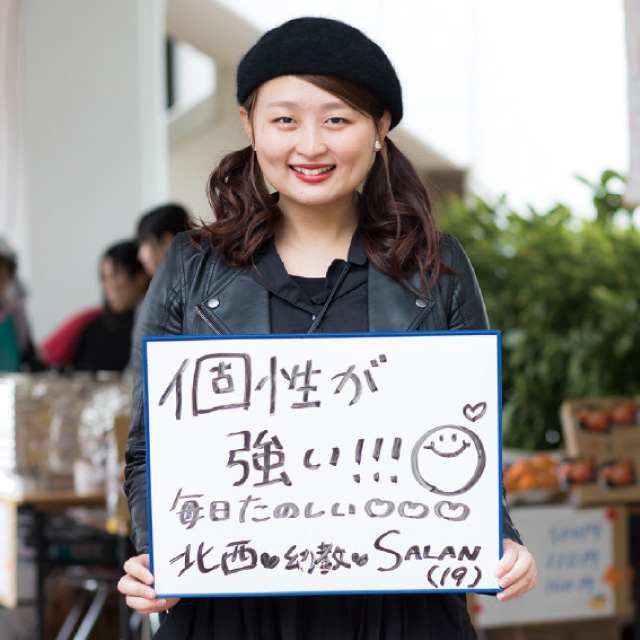 個性が
強い!!!
毎日たのしい♡♡♡
北西♥幼教♥SALAN
(19)